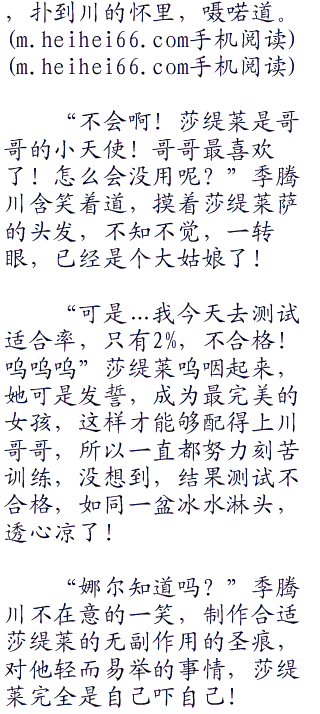 ，扑到川的怀里，嗫喏道。
(m.heihei66.com手机阅读)
(m.heihei66.com手机阅读)
“不会啊！莎缇莱是哥
哥的小天使！哥哥最喜欢
了！怎么会没用呢？”季腾
川含笑着道，摸着莎缇莱萨
的头发，不知不觉，一转
眼，已经是个大姑娘了！
“可是…我今天去测试
适合率，只有2%，不合格！
呜呜呜”莎缇莱呜咽起来，
她可是发誓，成为最完美的
女孩，这样才能够配得上川
哥哥，所以一直都努力刻苦
训练，没想到，结果测试不
合格，如同一盆冰水淋头，
透心凉了！
“娜尔知道吗？”季腾
川不在意的一笑，制作合适
莎缇莱的无副作用的圣痕，
对他轻而易举的事情，莎缇
莱完全是自己吓自己！